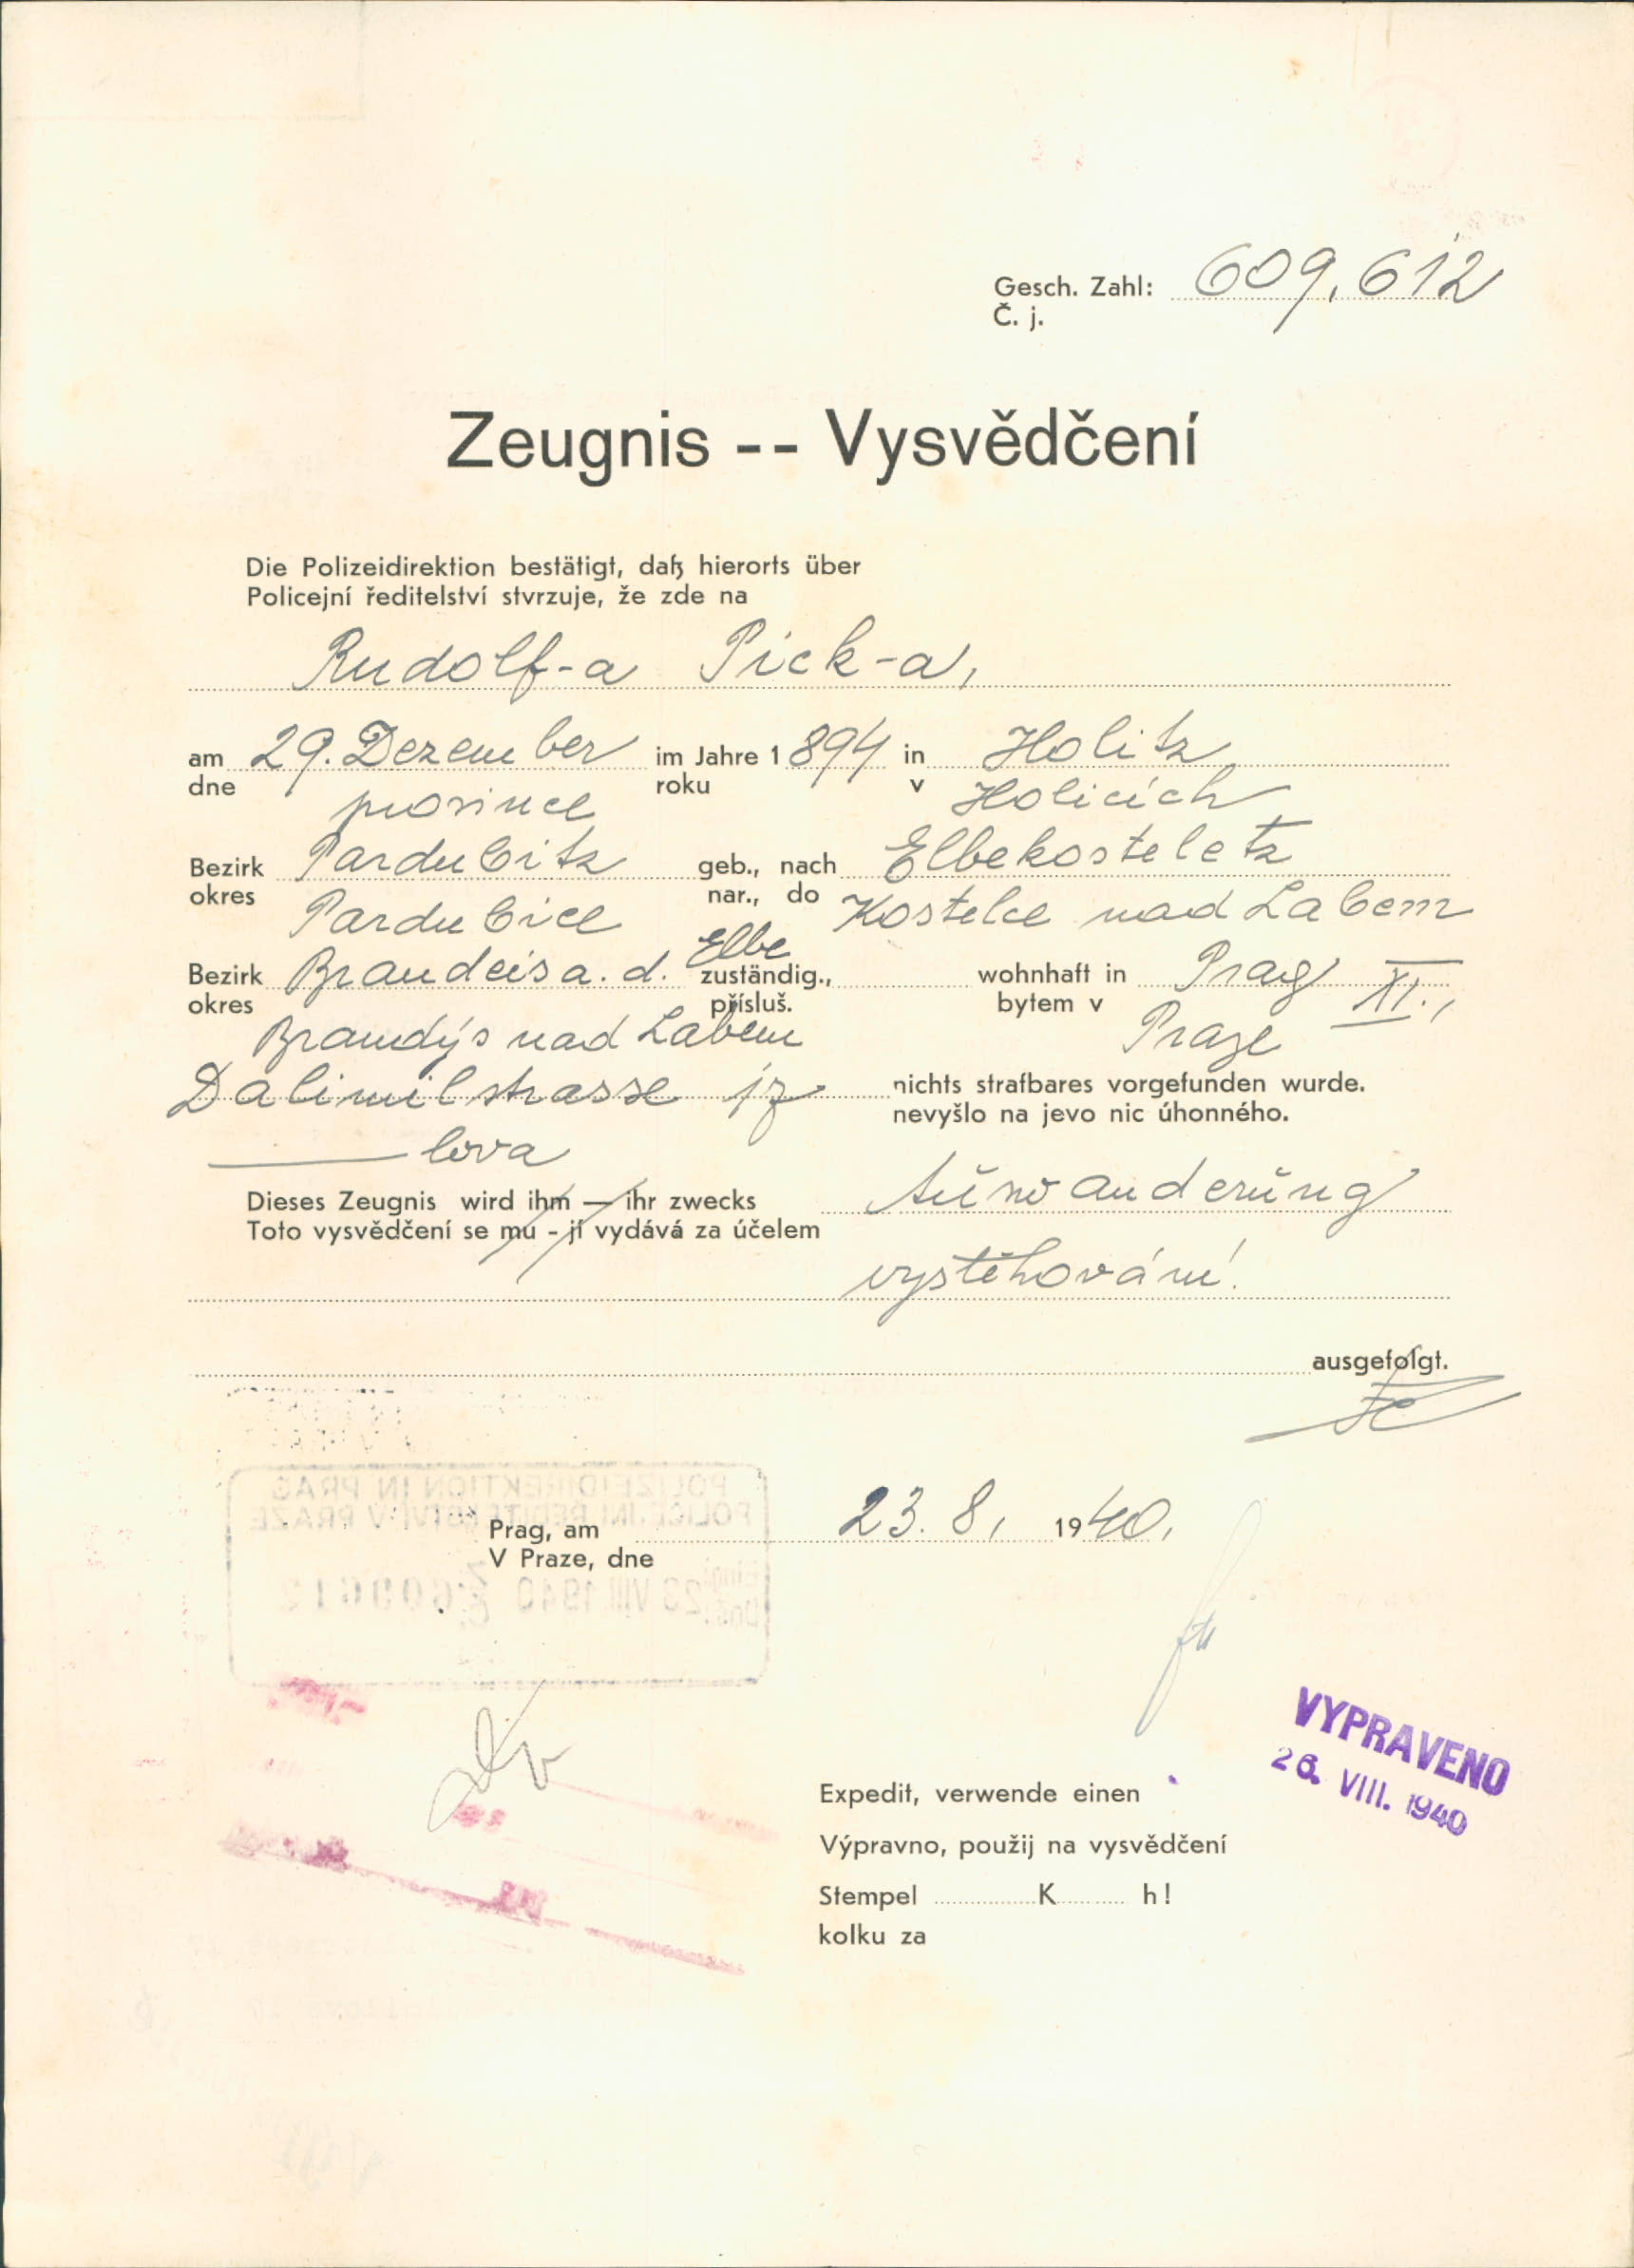 Gesch. Zahl: 609,612
Č. j.
Zeugnis -- Vysvědčení
Die Polizeidirektion bestätigt, daß hierorts über
Policejní ředitelství stvrzuje, že zde na
Rudolf-a Pick-a,
am 29. Dezember im Jahre 1894 in Holitz
dne prosince roku v Holicích
Bezirk Pardubitz geb., nach Elbekosteletz
okres Pardubice nar., do Kostelce nad Labem
Bezirk Brandeis a. d. Elbe zuständig., wohnhaft in Prag XI.,
okres Brandýs nad Labem přísluš. bytem v Praze
Dalimilstrasse 17 nichts strafbares vorgefunden wurde.
lova nevyšlo na jevo nic úhonného.
Dieses Zeugnis wird ihm — ihr zwecks Auswanderung
Toto vysvědčení se mu - jí vydává za účelem
vystěhování.
ausgefolgt.
POLIZEIDIREKTION IN PRAG
POLICEJNÍ ŘEDITELSTVÍ V PRAZE
Prag, am 23. 8. 1940.
V Praze, dne
Eing.
Došl. 23 VIII 1940 Z. Č. 609612
VYPRAVENO
26. VIII. 1940
Expedit, verwende einen
Výpravno, použij na vysvědčení
Stempel K h!
kolku za